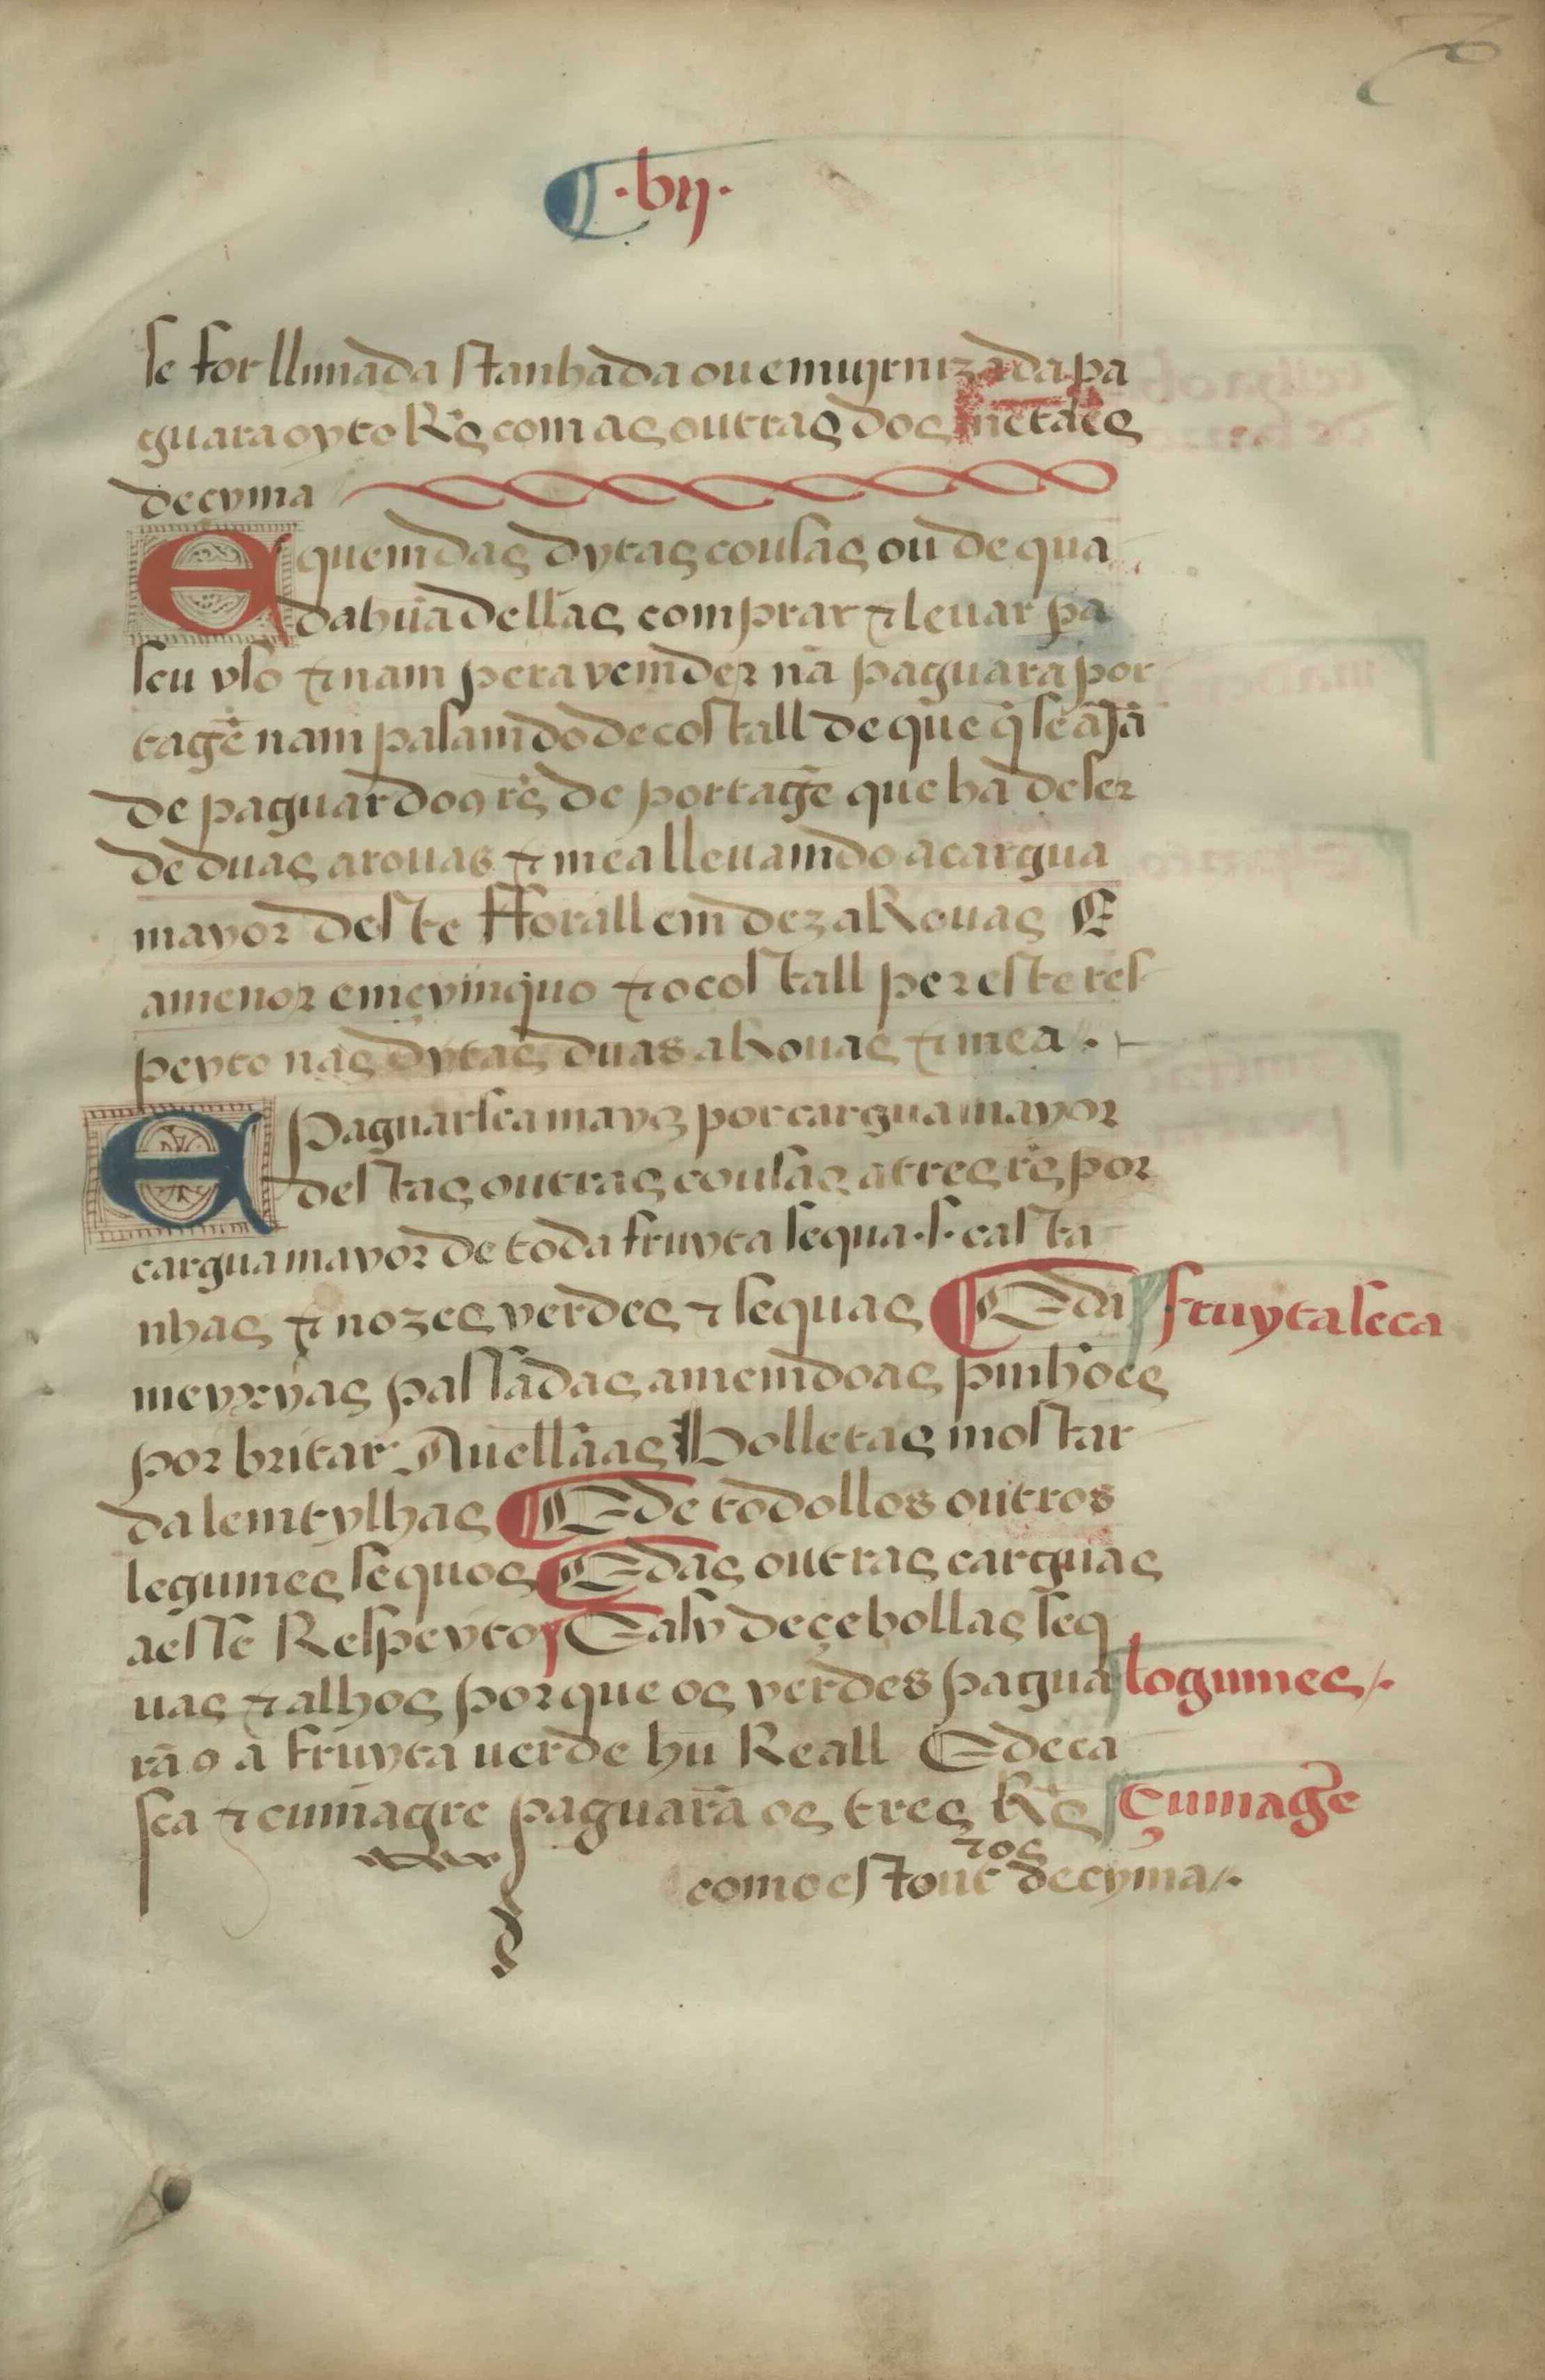 ¶ .bij.
se for llimada stanhada ou emvyrnizada pa
guara oyto Rs com as outras dos metaes
de cyma
E quem das dytas cousas ou de qua
da hũa dellas comprar & levar pa
seu vso & nam pera vemder nã paguara por
tagẽ nam pasamdo de costall de que q̃ se ajã
de paguar dous rs̃ de portagẽ que ha de ser
de duas arouas & mea llevamdo a cargua
mayor deste fforall em dez aRouas E
a menor em çymquo & o costall per este res
peyto nas dytas duas aRouas & mea /.
E Paguarsea mays por cargua mayor
destas outras cousas a tres rs̃ por
cargua mayor de toda fruyta sequa .s. casta
nhas & nozes verdes & sequas E da
fruyta seca
meyxyas passadas amemdoas pinhões
por britar Auellãas Bolletas mostar
da lemtylhas E de todollos outros
legumes sequos E das outras carguas
a esse Respeyto E asy de çebollas seq
uas & alhos porque os verdes pagua
logumes /.
rã o a fruyta uerde hũ Reall E de ca
sca & çumagre paguarã os tres Rs̃
Çumagẽ
tos
como estout de cyma /.